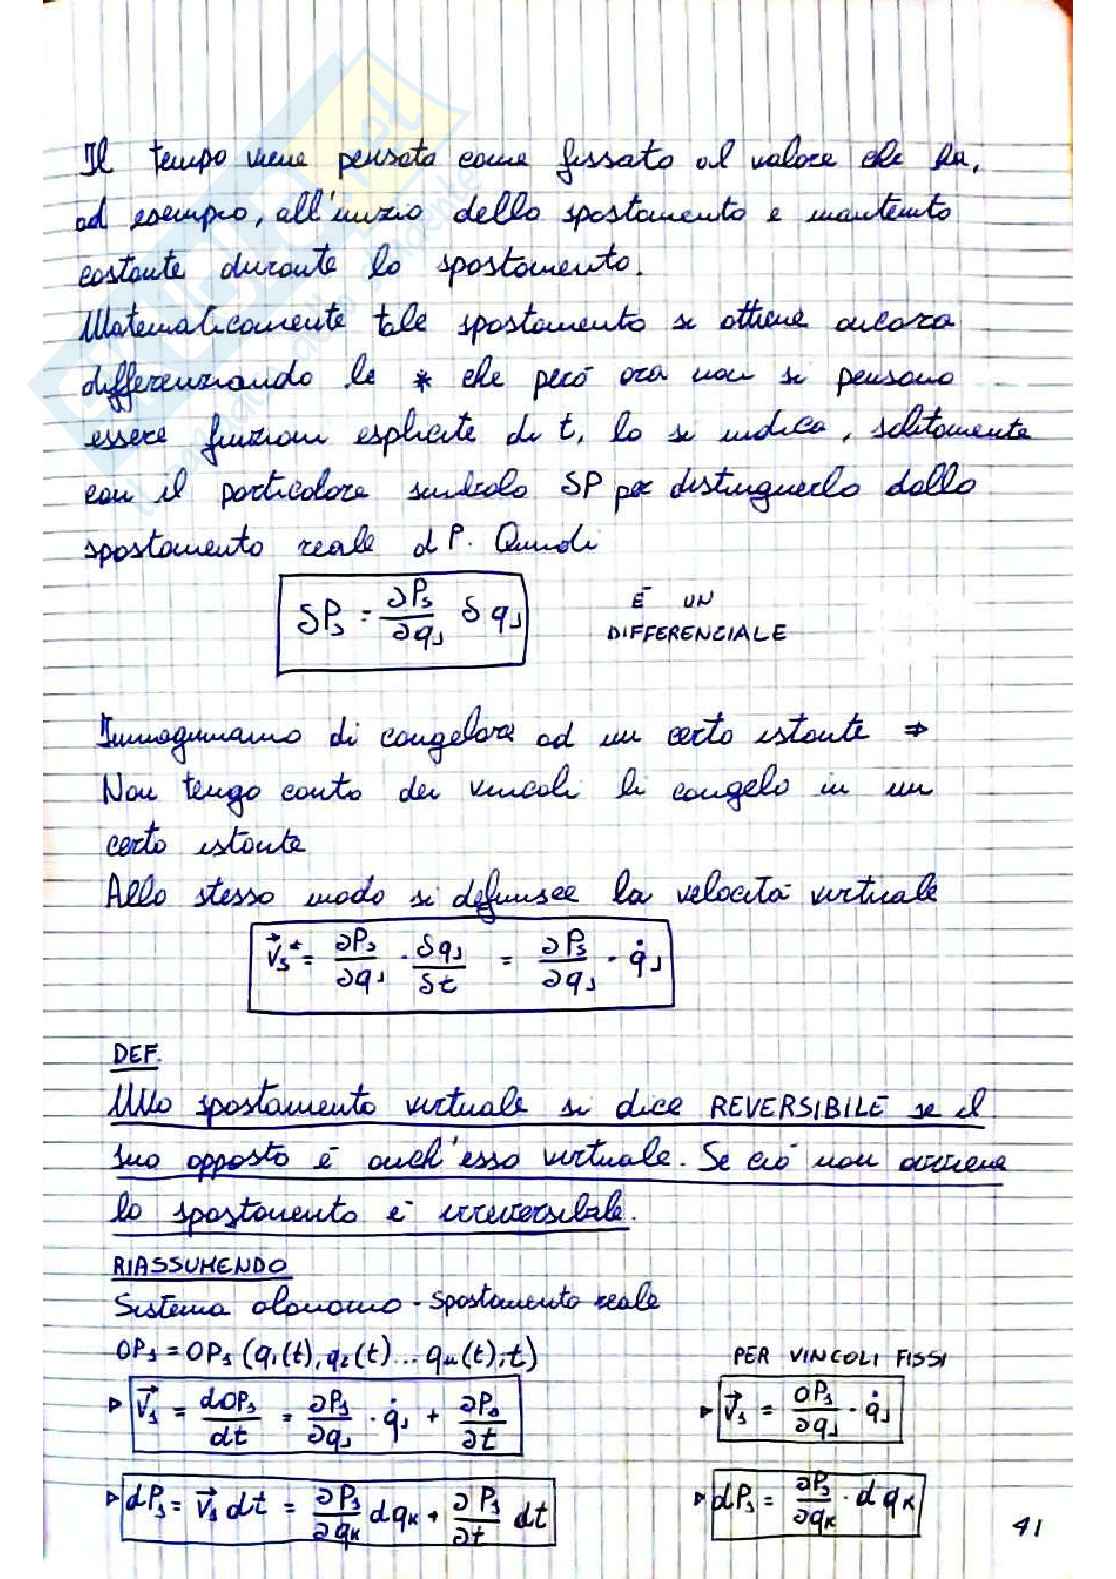 Il tempo viene pensato come fissato al valore che ha,
ad esempio, all'inizio dello spostamento e mantenuto
costante durante lo spostamento.
Matematicamente tale spostamento si ottiene ancora
differenziando le * che però ora non si pensano
essere funzioni esplicite di t, lo si indica, solitamente
con il particolare simbolo δP per distinguerlo dallo
spostamento reale dP. Quindi
δPs = ∂Ps/∂qJ δqJ
È UN
DIFFERENCIALE
Immaginiamo di congelare ad un certo istante ⇒
Non tengo conto dei vincoli li congelo in un
certo istante
Allo stesso modo si definisce la velocità virtuale
v⃗s* = ∂Ps/∂qJ · δqJ/δt = ∂Ps/∂qJ · q̇J
DEF.
Uno spostamento virtuale si dice REVERSIBILE se il
suo opposto è anch'esso virtuale. Se ciò non avviene
lo spostamento è irreversibile.
RIASSUMENDO
Sistema olonomo - spostamento reale
OPs = OPs (q1(t), q2(t)... qn(t), t)
PER VINCOLI FISSI
▷ v⃗s = dOPs/dt = ∂Ps/∂qJ · q̇J + ∂Ps/∂t
▷ v⃗s = ∂Ps/∂qJ · q̇J
▷ dPs = v⃗s dt = ∂Ps/∂qK dqK + ∂Ps/∂t dt
▷ dPs = ∂Ps/∂qK · dqK
41